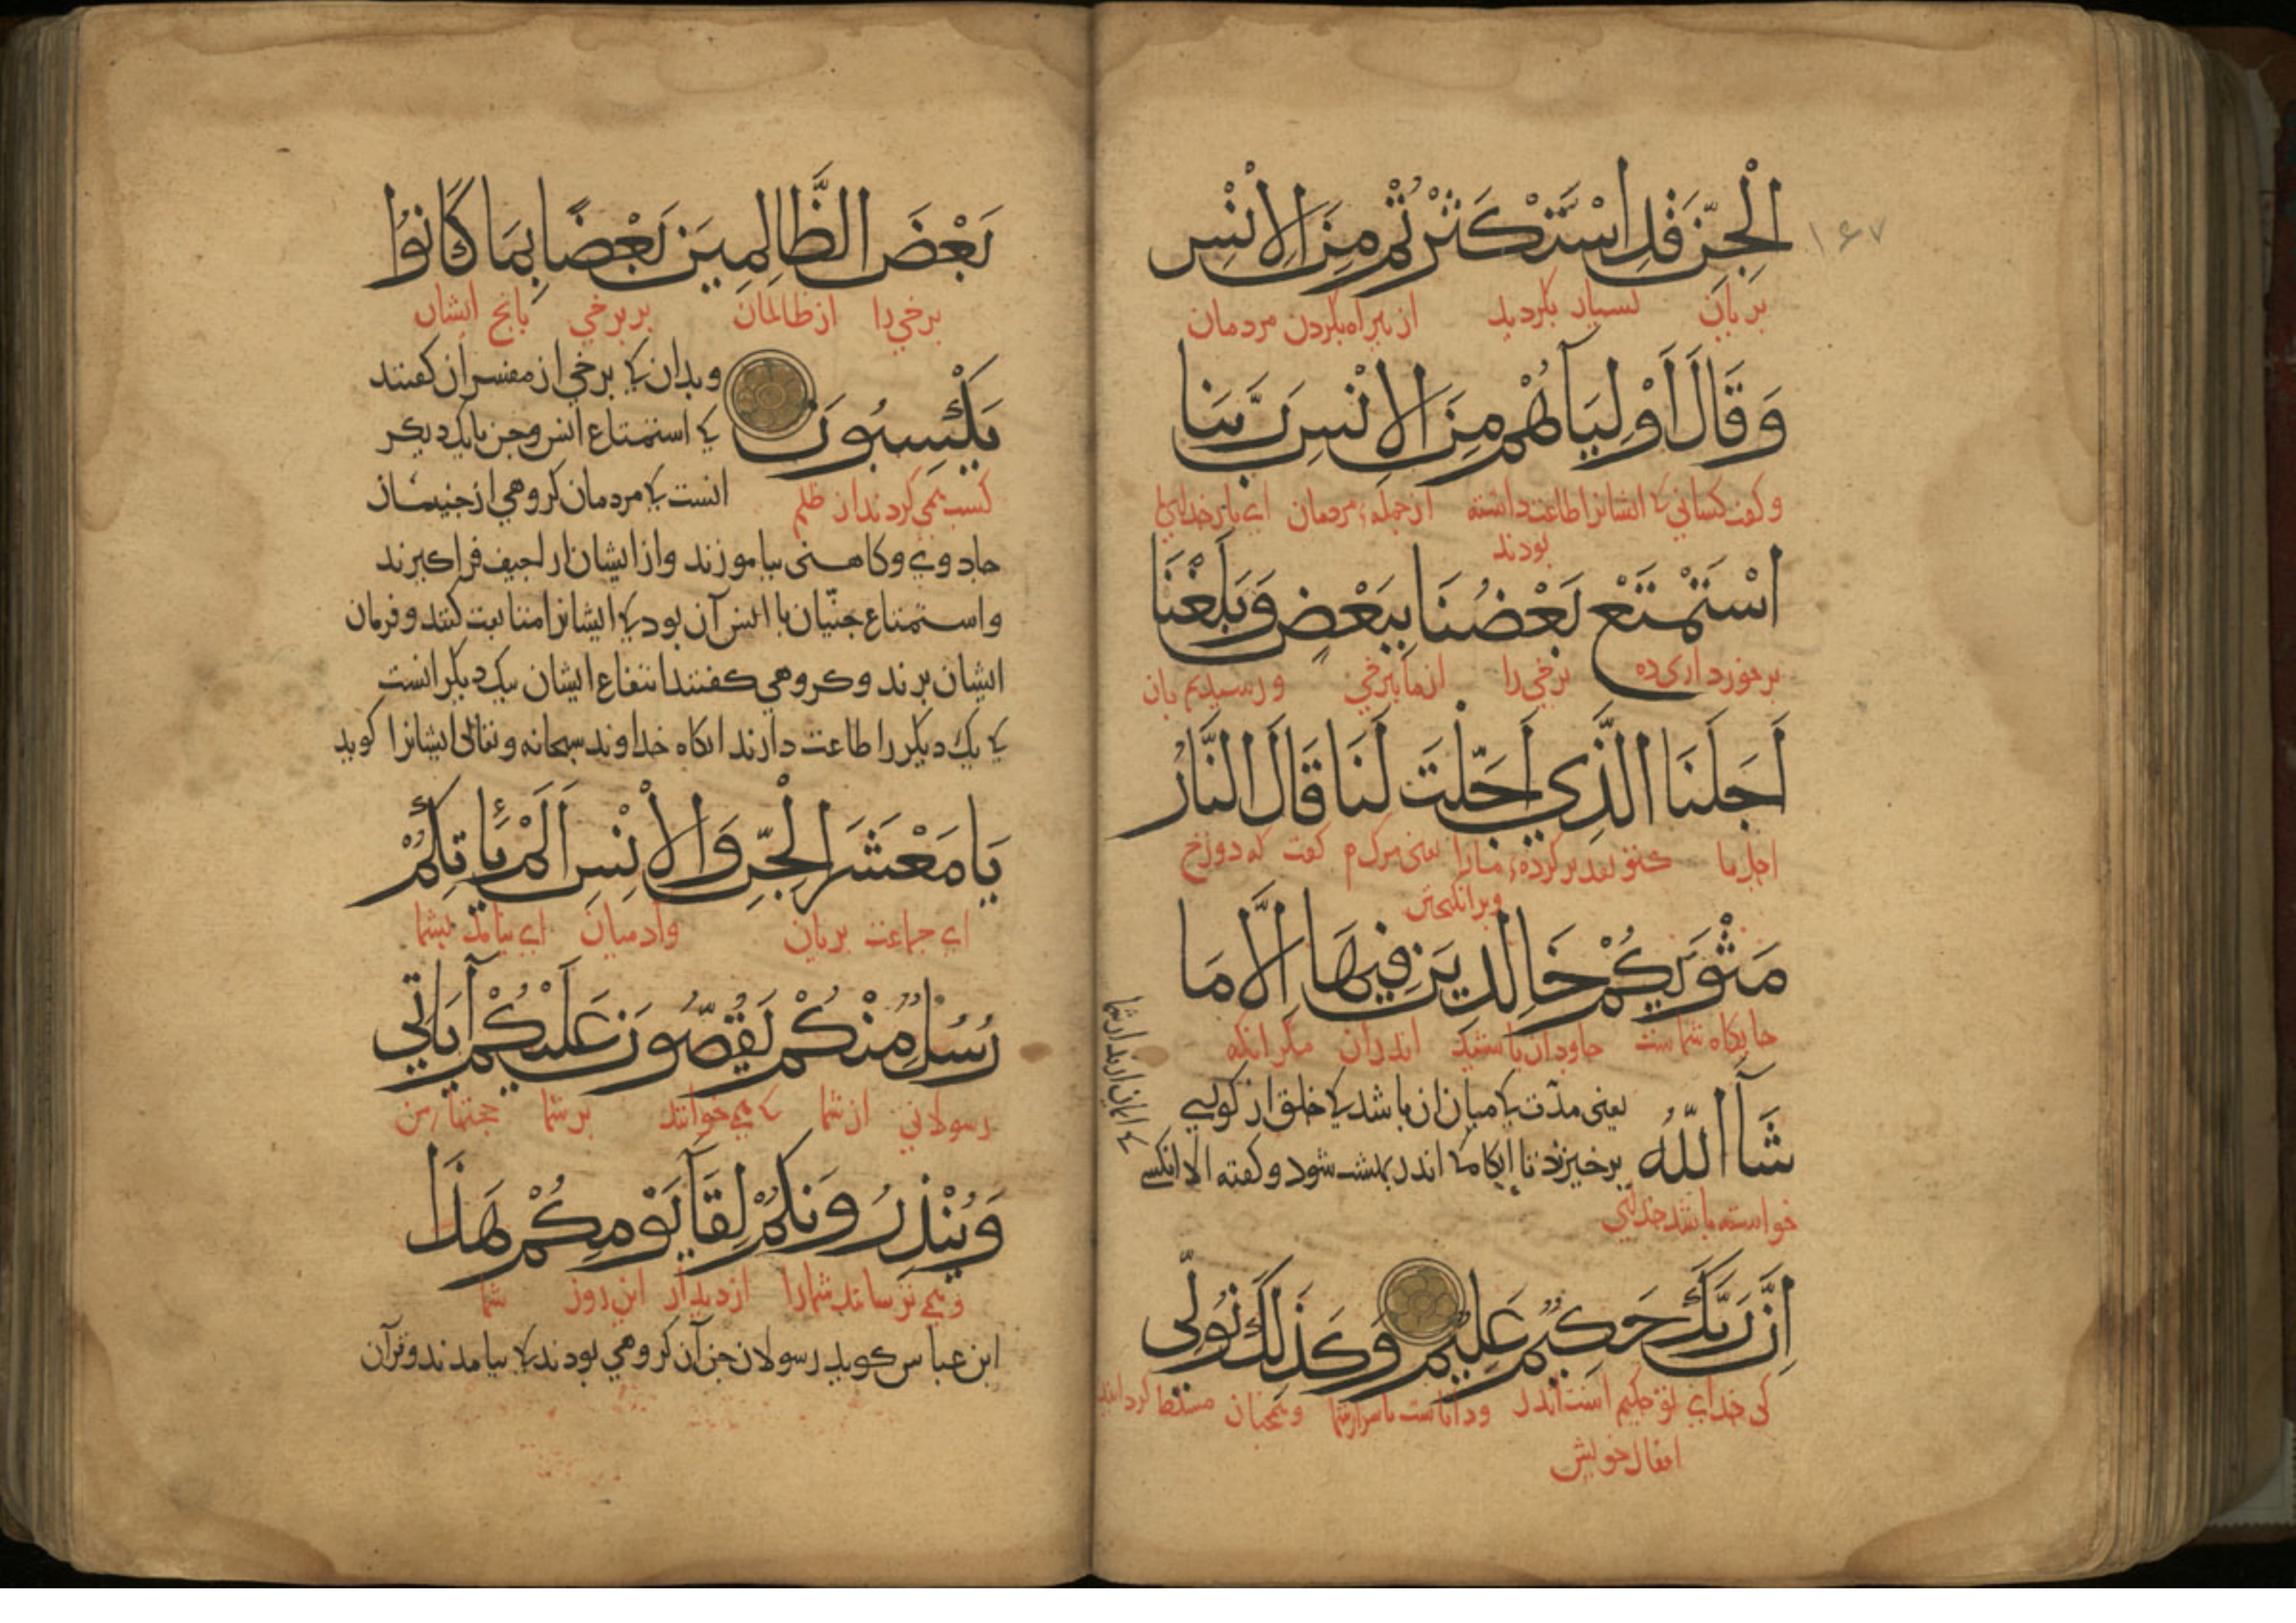 ۱۶۷
الْجِنِّ قَدِ اسْتَكْثَرْتُمْ مِنَ الْاِنْسِ
بسیار بکردید از بیراه کردن مردمان
وَقَالَ اَوْلِيَآؤُهُمْ مِنَ الْاِنْسِ رَبَّنَا
و کفت کسانی کی ایشانرا اطاعت داشته از جمله مردمان ای بار خدای
بودند
اسْتَمْتَعَ بَعْضُنَا بِبَعْضٍ وَبَلَغْنَا
برخورداری ده برخی را از ما ببرخی و رسیدیم بان
اَجَلَنَا الَّذِي اَجَّلْتَ لَنَا قَالَ النَّارُ
اجل ما مارا یعنی مرک کفت که دوزخ
وبرانکیختن
مَثْوٰىكُمْ خَالِدِينَ فِيهَا اِلَّا مَا
جایکاه شماست جاودان باشید اندران مکر انکه
شَآءَ اللّٰهُ یعنی مدّت کی میان ان باشد کی خلق از کور
برخیزند تا انکاه کی اندر بهشت شود و کفته الا انکسی
کی ایمان ارند از شما
خواسته باشد خدای
اِنَّ رَبَّكَ حَكِيمٌ عَلِيمٌ وَكَذٰلِكَ نُوَلِّي
کی خدای تو حکیم است اندر و داناست باسرار شما و همچنان مسلط کردانید
افعال خویش
بَعْضَ الظَّالِمِينَ بَعْضًا بِمَا كَانُوا
برخی را از ظالمان بر برخی بانچ ایشان
يَكْسِبُونَ وبدان کی برخی از مفسران کفتند
کی استمتاع انس و جن با یک دیکر
انست کی مردمان کروهی از جنیان
کسب همی کردند از ظلم
جادوی و کاهنی بیاموزند و از ایشان اراجیف فراکیرند
و استمتاع جنّیان با انس آن بود کی ایشانرا متابعت کنند و فرمان
ایشان برند و کروهی کفتند انتفاع ایشان بیک دیکر انست
کی یک دیکر را طاعت دارند انکاه خداوند سبحانه و تعالی ایشانرا کوید
يَا مَعْشَرَ الْجِنِّ وَالْاِنْسِ اَلَمْ يَأْتِكُمْ
ای جماعت پریان وادمیان ای نیامد بشما
رُسُلٌ مِنْكُمْ يَقُصُّونَ عَلَيْكُمْ آيَاتِي
رسولانی از شما کی همی خوانند بر شما حجتهای من
وَيُنْذِرُونَكُمْ لِقَآءَ يَوْمِكُمْ هَذَا
و همی ترسانند شما را از دیدار این روز شما
ابن عباس کوید رسولان جن آن کروهی بودند کی بیامدند و قرآن